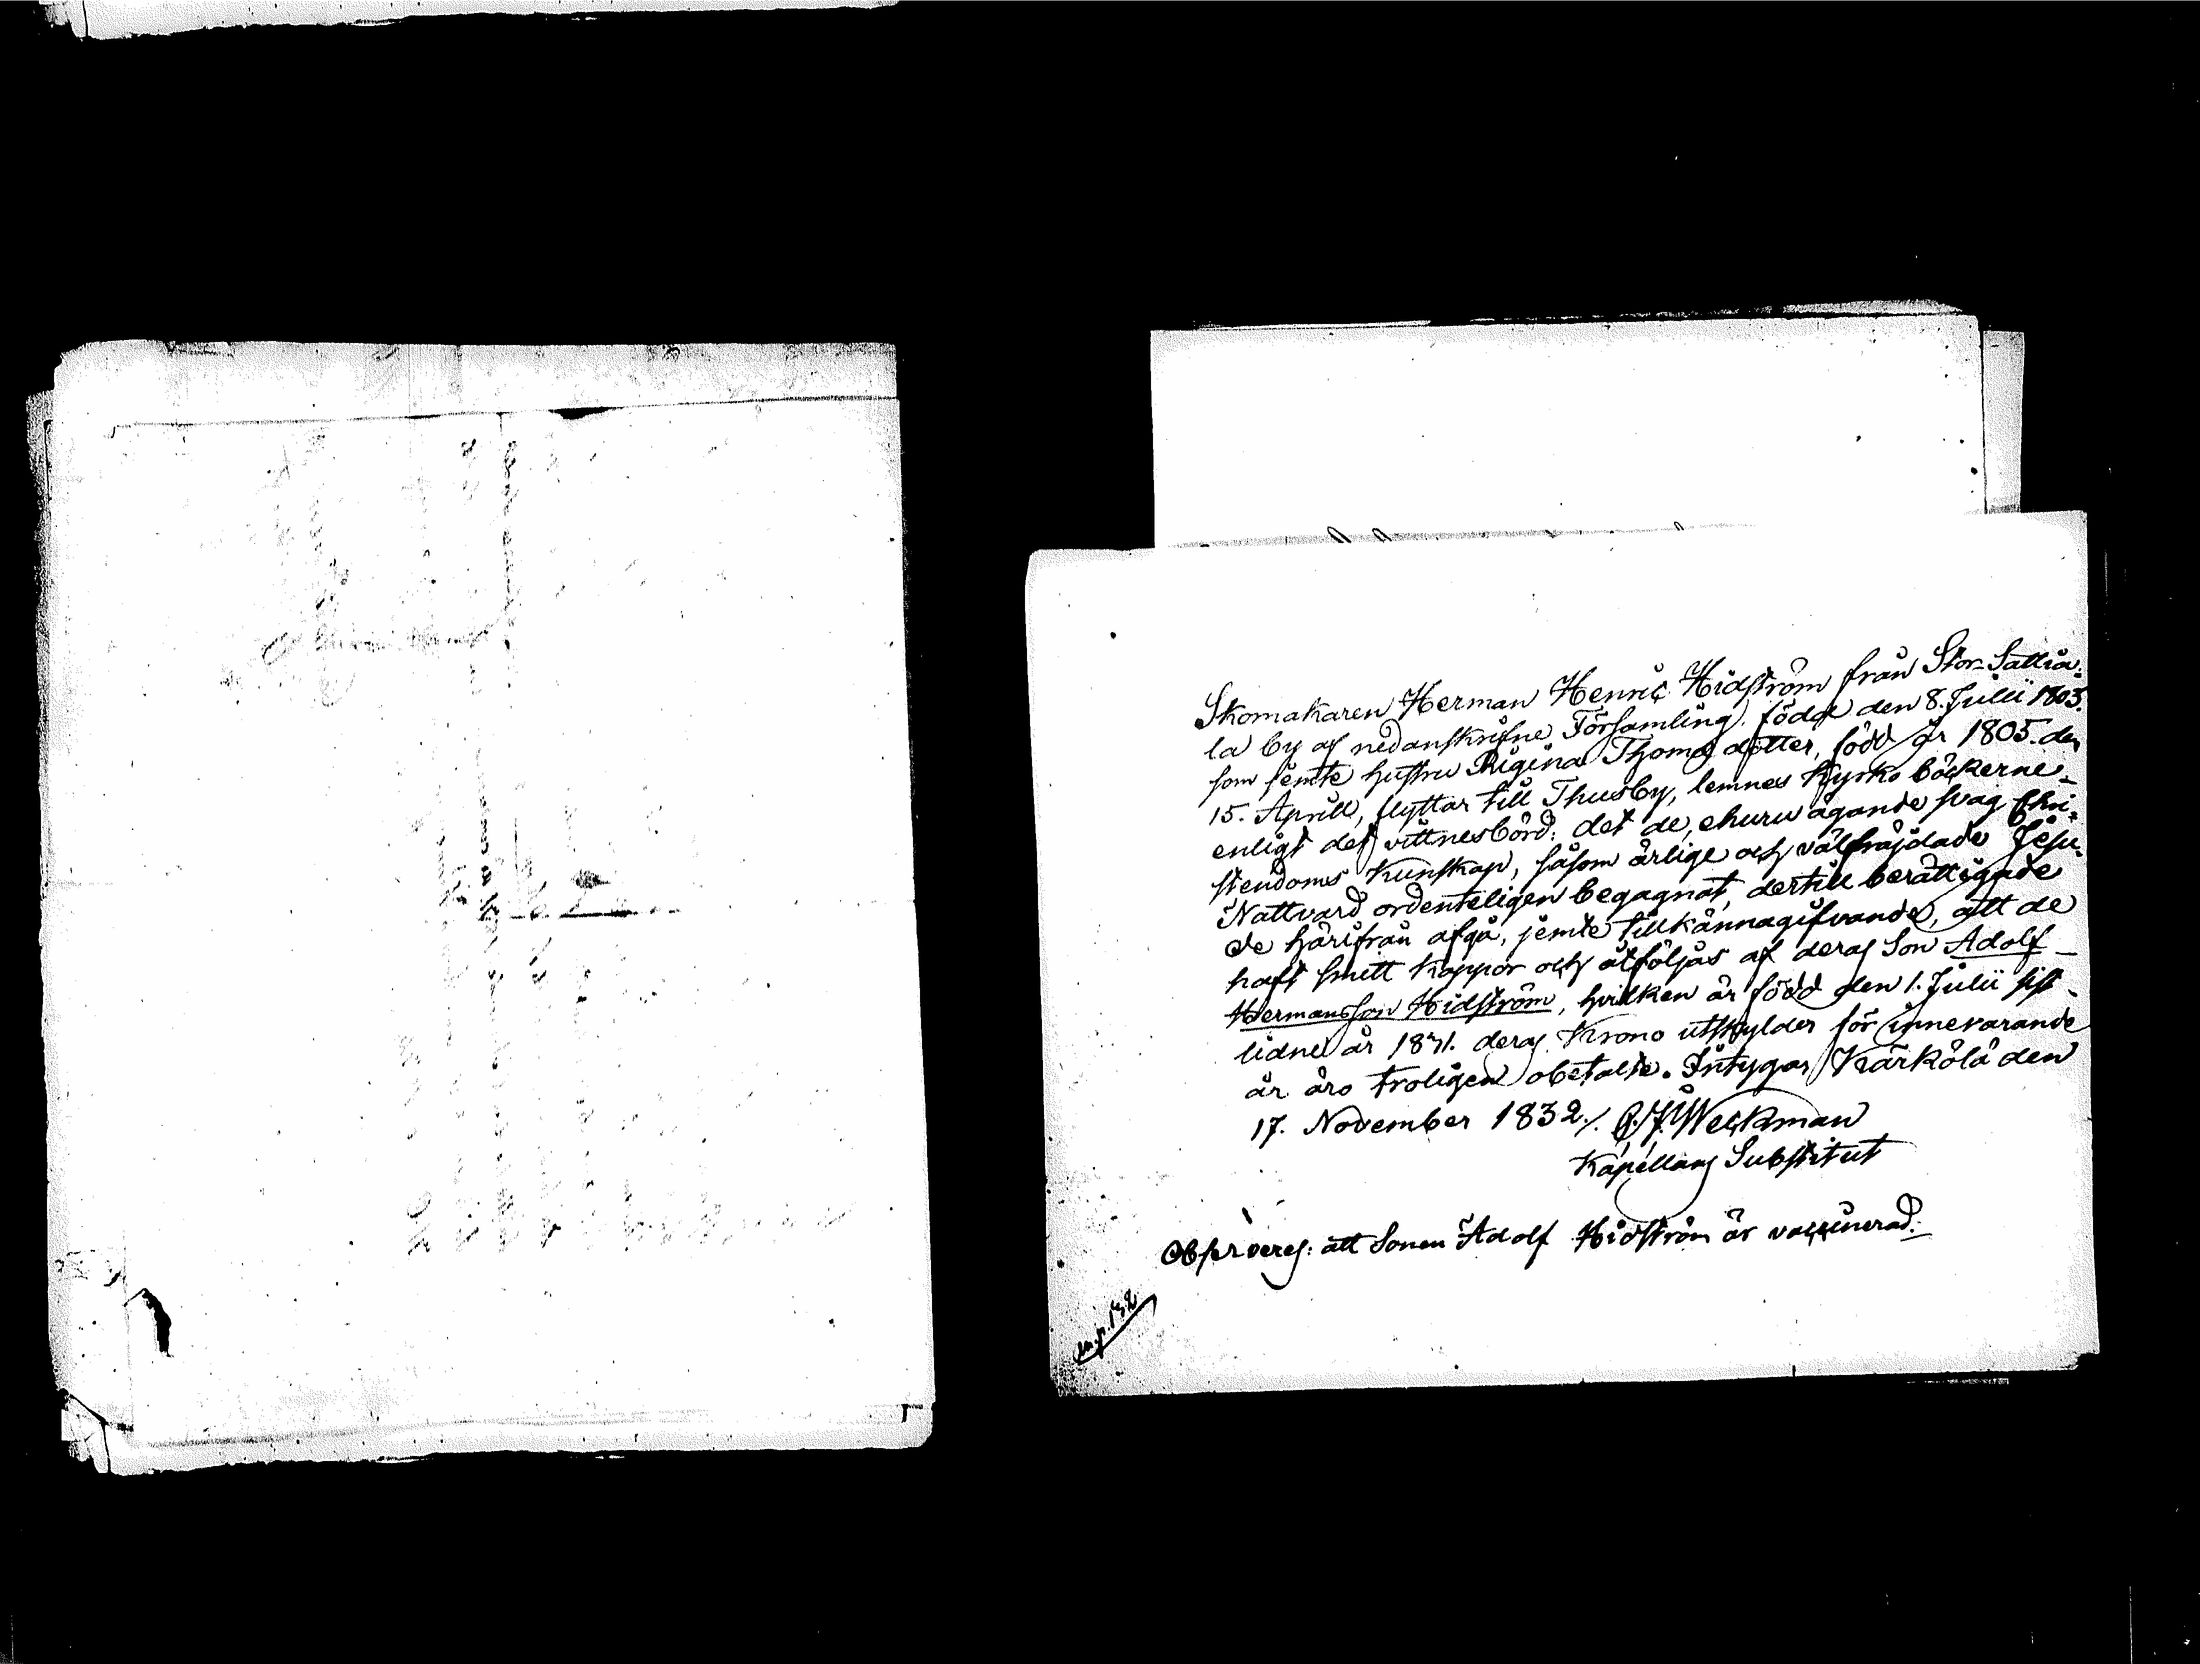 Skomakaren Herman Henric Hidström från Stor-Sattia-
la by af nedanskrifne Församling, född den 8. Julii 1803.
som jemte hustru Rigina Thomæ dotter, född år 1805. den
15. Aprill, flyttar till Thusby, lemnas Kyrko böckerne
enligt det vittnesbörd: det de, ehuru ägande svag Chri-
stendoms Kunskap, såsom ärlige och välfräjdade Jesu
Nattvard ordenteligen begagnat, dertill berättigade
de härifrån afgå, jemte tillkännagifvande, att de
haft smitt koppor och åtföljas af deras Son Adolf
Hermansson Hidström, hvilken är född den 1. Julii sist-
lidne år 1831. deras Krono utskylder för innevarande
år äro troligen obetalte. Intygas Kärkölä den
17. November 1832./. C. J. Weckman
Kapellans Substitut
Observeras: att Sonen Adolf Hidström är vaccinerad.
m.p. 132